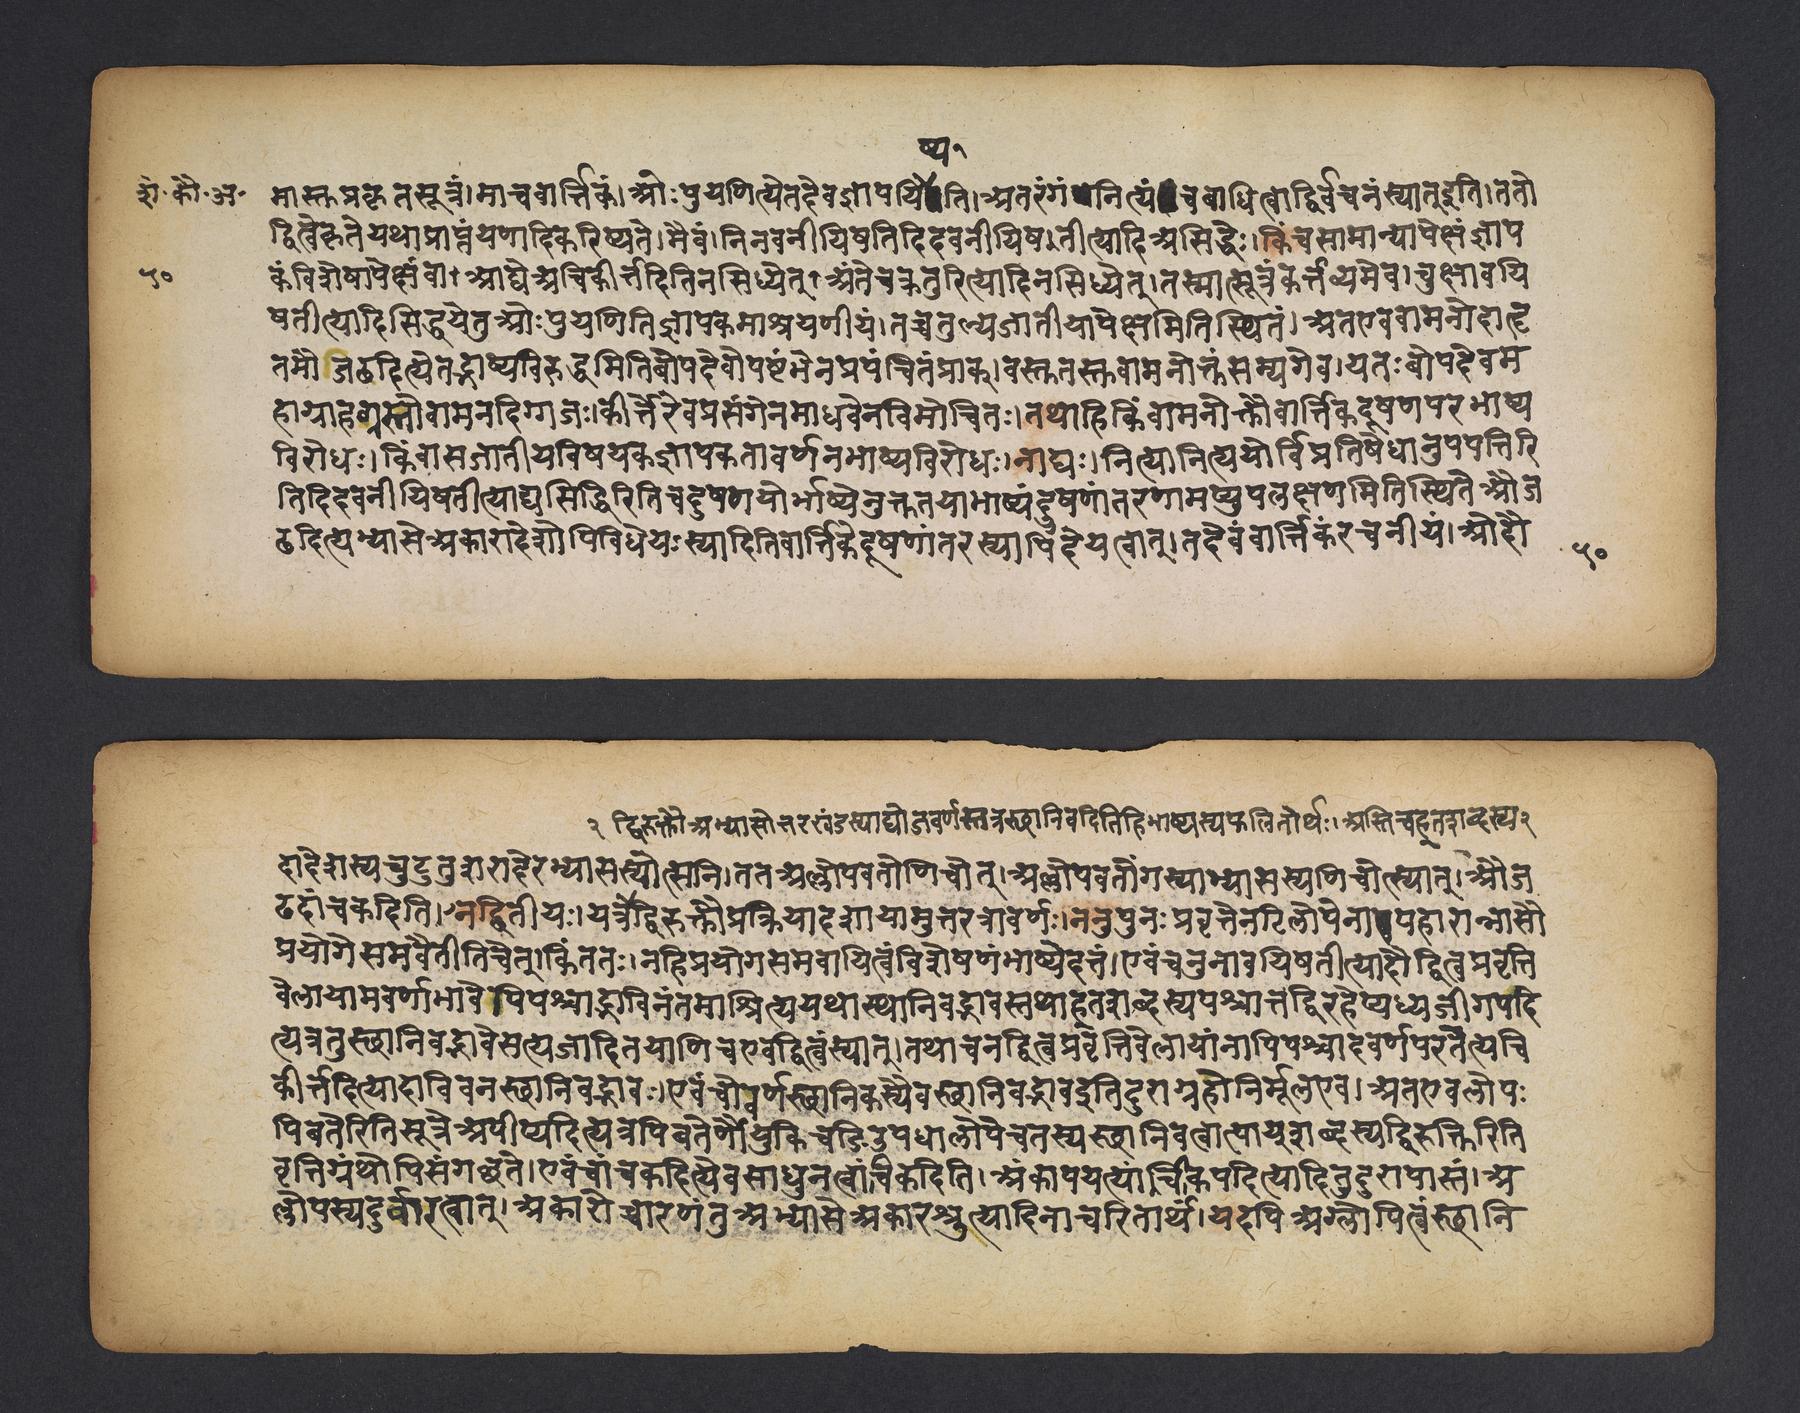 ष्य१
श॰ कौ॰ अ॰ मास्तु प्रकृतसूत्रं। माचवार्त्तिकं। ओः पुयणित्येतदेवज्ञापयिष्यति। अतरंगंनित्यंचबाधित्वाद्विर्वचनंस्यात्इति। ततो
द्वित्वेकृतेयथाप्राप्तंयणादिकरिष्यते। मैवं। निनवनीयिषतिदिदवनीयिषतीत्यादिअसिद्धेः। किंचसामान्यापेक्षंज्ञाप
५० कंविशेषापेक्षंवा। आद्येअचिकीर्त्तदितिनसिध्येत्। अंतेचक्रतुरित्यादिनसिध्येत्। तस्मात्सूत्रंकर्त्तव्यमेव। चुक्षावयि
षतीत्यादिसिद्धयेतुओः पुयणितिज्ञापकमाश्रयणीयं। तच्चतुल्यजातीयापेक्षमितिस्थितं। अतएववामनोदाहृ
तमौजिढदित्येतद्भाष्यविरुद्धमितिबोपदेवोपष्टंभेनप्रपंचितंप्राक्। वस्तुतस्तुवामनोक्तंसम्यगेव। यतः बोपदेवम
हाग्राहग्रस्तोवामनदिग्गजः। कीर्त्तेरेवप्रसंगेनमाधवेनविमोचितः। तथाहिकिंवामनोक्तौवार्त्तिकदूषणपरभाष्य
विरोधः। किंवासजातीयविषयकज्ञापकतावर्णनभाष्यविरोधः। नाद्यः। नित्यानित्ययोर्विप्रतिषेधानुपपत्तिरि
तिदिदवनीयिषतीत्याद्यसिद्धिरितिचदुषणयोर्भाष्येनुक्ततयाभाष्यंदुषणांतरणामप्युपलक्षणमितिस्थितेऔज
ढदित्यभ्यासेअकारादेशोपिविधेयः स्यादितिवार्त्तिकेदूषणांतरस्यापिदेयत्वात्। तदेवंवार्त्तिकंरचनीयं। ओर्दौ ५०
२ द्विरुक्तौअभ्यासोत्तरखंडस्याद्योजवर्णस्तत्रस्थानिवदितिहिभाष्यस्यफलितोर्थः। अस्तिचहतशब्दस्य२
दादेशस्यचुटुतुशरादेरभ्यासस्यौत्सनि। ततअल्लोपवतोणिचोत्। अल्लोपवतोंगस्याभ्यासस्यणिचोत्स्यात्। औज
ढदांचकदिति। नद्वितीयः। यत्रद्विरुक्तौप्रक्रियादशायामुत्तरत्रावर्णः। ननुपुनः प्रवृत्तेनटिलोपेनापहारान्नासौ
प्रयोगेसमवैतीतिचेत्। किंततः। नहिप्रयोगसमवायित्वंविशेषणंभाष्येदत्तं। एवंचनुनावयिषतीत्यादौद्वित्वप्रवृत्ति
वेलायामवर्णाभावेपिपश्चाद्भाविनंतमाश्रित्ययथास्थानिवद्भावस्तथाहतशब्दस्यपश्चात्तद्विरहेप्यध्यजीगपदि
त्यत्रतुस्थानिवद्भावेसत्यजादितयाणिचएवद्वित्वंस्यात्। तथाचनद्वित्वप्रवृत्तिवेलायांनापिपश्चादवर्णपरतेत्यचि
कीर्त्तदित्यादाविवनस्थानिवद्भावः। एवंचोवर्णस्थानिकस्यैवस्थानिवद्भावइतिदुराग्रहोनिर्मूलएव। अतएवलोपः
पिबतेरितिसूत्रेअपीप्यदित्यत्रपिबतेर्णौयुकिचङिउपधालोपेचतस्यस्थानिवत्वात्पायुशब्दस्यद्विरुक्तिरिति
वृत्तिग्रंथोपिसंगच्छते। एवंचांचकदित्येवसाधुनत्वांचिकेदिति। अंकापयत्यांर्चिकपदित्यादितुदुरापास्तं। अ
ल्लोपस्यदुर्वारत्वात्। अकारोच्चारणंतुअभ्यासेअकारश्रुत्यादिनाचरितार्थं। यदपिअग्लोपित्वंस्थानि